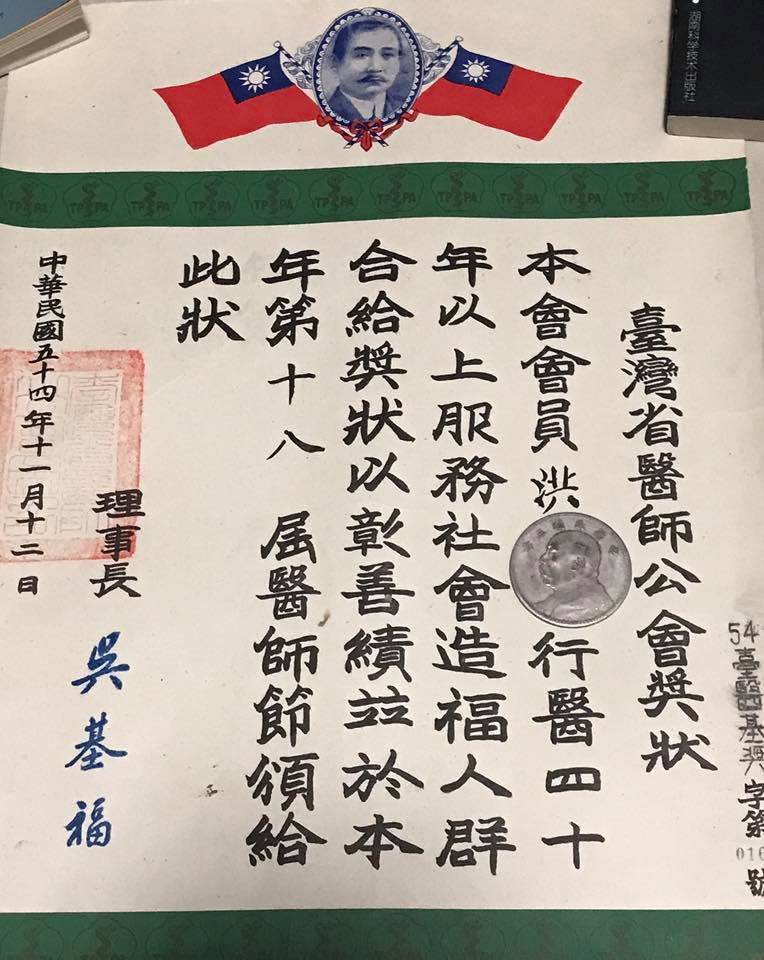 臺灣省醫師公會獎狀
本會會員洪 行醫四十
年以上服務社會造福人群
合給獎狀以彰善績並於本
年第十八 屆醫師節頒給
此狀
理事長 吳基福
中華民國五十四年十一月十二日
54臺醫基獎字第016號
TPPA TPPA TPPA TPPA TPPA TPPA TPPA TPPA TPPA TPPA TPPA TPPA
湖南科学技术出版社